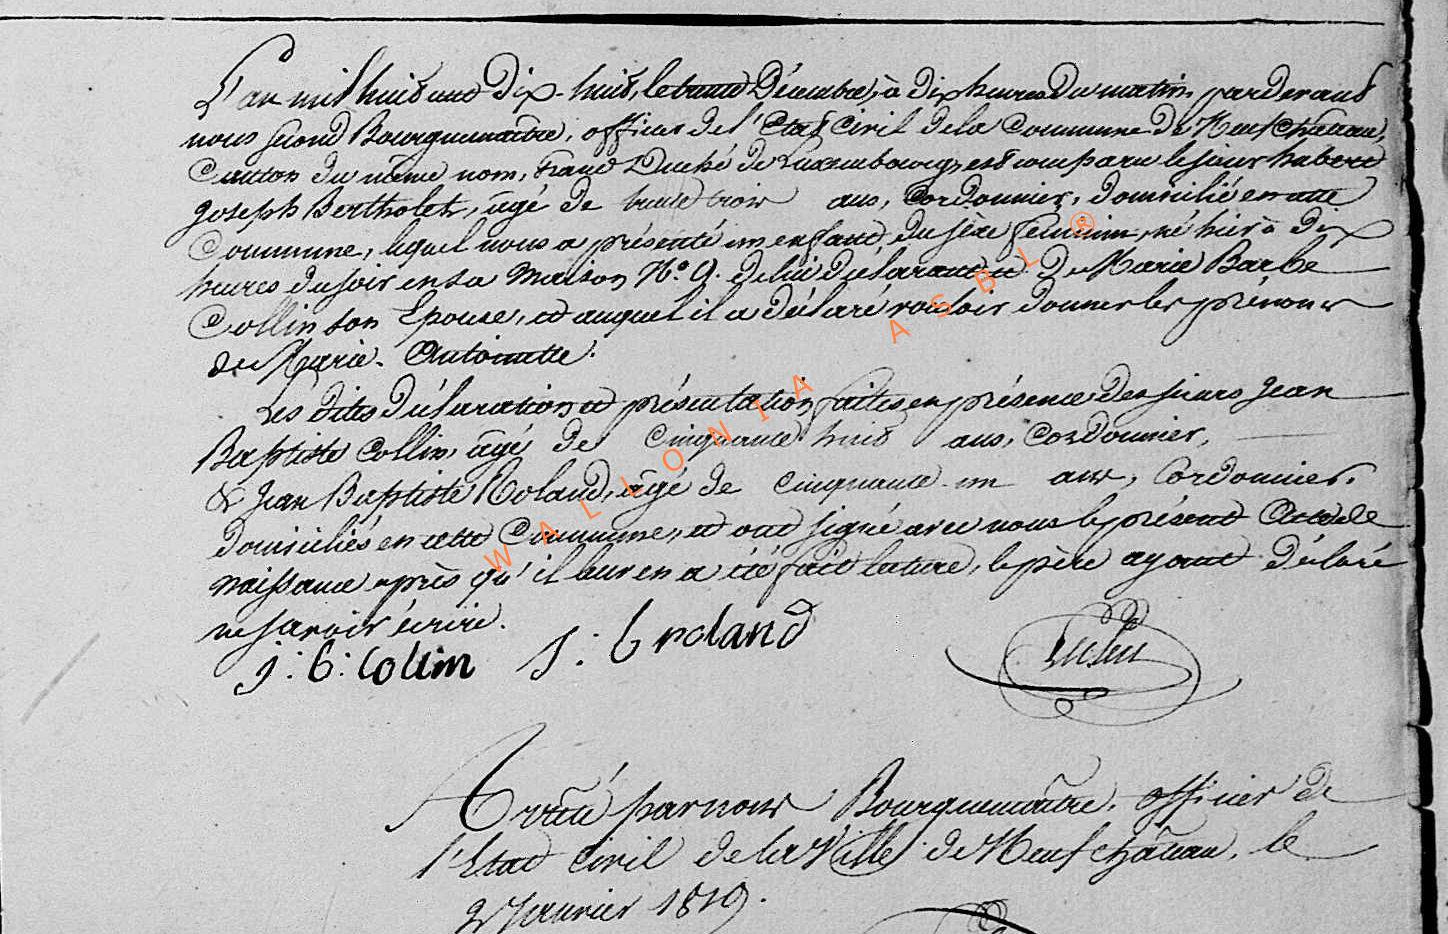 L'an mil huit cent Dix-huit, le trente Décembre, à dix heures du matin pardevant
nous second Bourguemaître, officier de l'Etat Civil de la Commune de Neufchâteau,
Canton du même nom, Grand Duché de Luxembourg, est comparu le sieur hubert
Joseph Bertholet, âgé de trente trois ans, Cordonnier, domicilié en cette
Commune, lequel nous a présenté un enfant, du sèxe féminin, né hier à dix
heures du soir en sa Maison N.o 9. de lui déclarant et de Marie Barbe
Collin son Epouse, et auquel il a déclaré vouloir donner les prénoms
de Marie-Antoinette.
Les dites déclaration et présentation faites en présence des sieurs Jean
Baptiste Collin, âgé de cinquante huit ans, Cordonnier,
& Jean Baptiste Roland, âgé de cinquante-un ans, Cordonnier,
domiciliés en cette Commune, et ont signé avec nous le présent Acte de
naissance après qu'il leur en a été fait lecture, le père ayant déclaré
ne savoir écrire.
J: b: Collin J: b roland
Arrêté par nous Bourguemaître, officier de
l'Etat Civil de la Ville de Neufchâteau, le
2 Janvier 1819.
WALLONIA ASBL ®